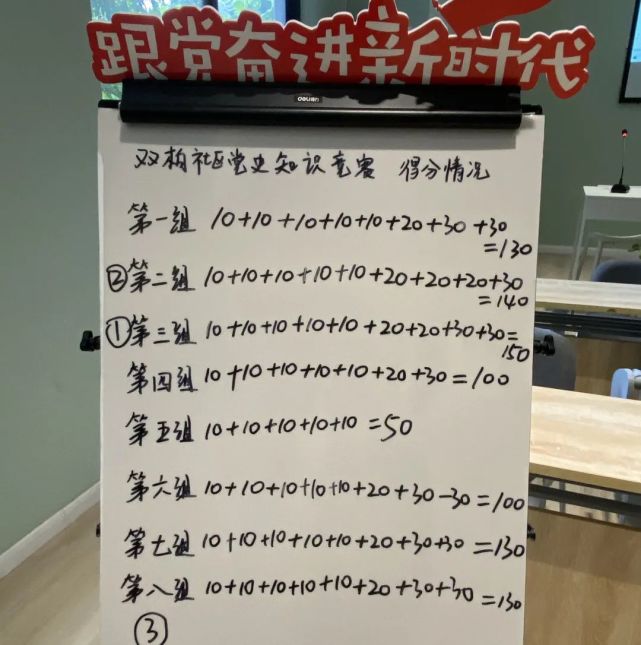 跟党奋进新时代
deli得力
双柏社区党史知识竞赛 得分情况
第一组 10+10+10+10+10+20+30+30
=130
②第二组 10+10+10+10+10+20+20+20+30
=140
①第三组 10+10+10+10+10+20+20+30+30=
150
第四组 10+10+10+10+10+20+30=100
第五组 10+10+10+10+10=50
第六组 10+10+10+10+10+20+30-30=100
第七组 10+10+10+10+10+20+30+30=130
第八组 10+10+10+10+10+20+30+30=130
③